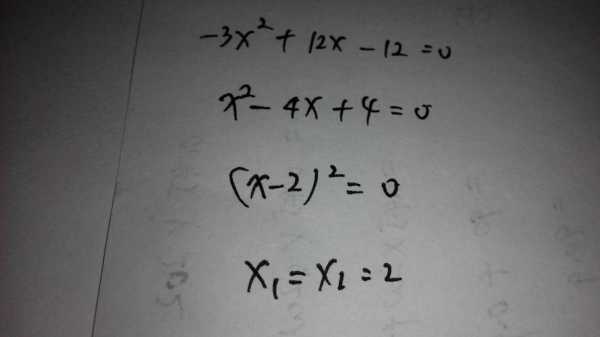 -3x²+12x-12=0
x²-4x+4=0
(x-2)²=0
x₁=x₂=2